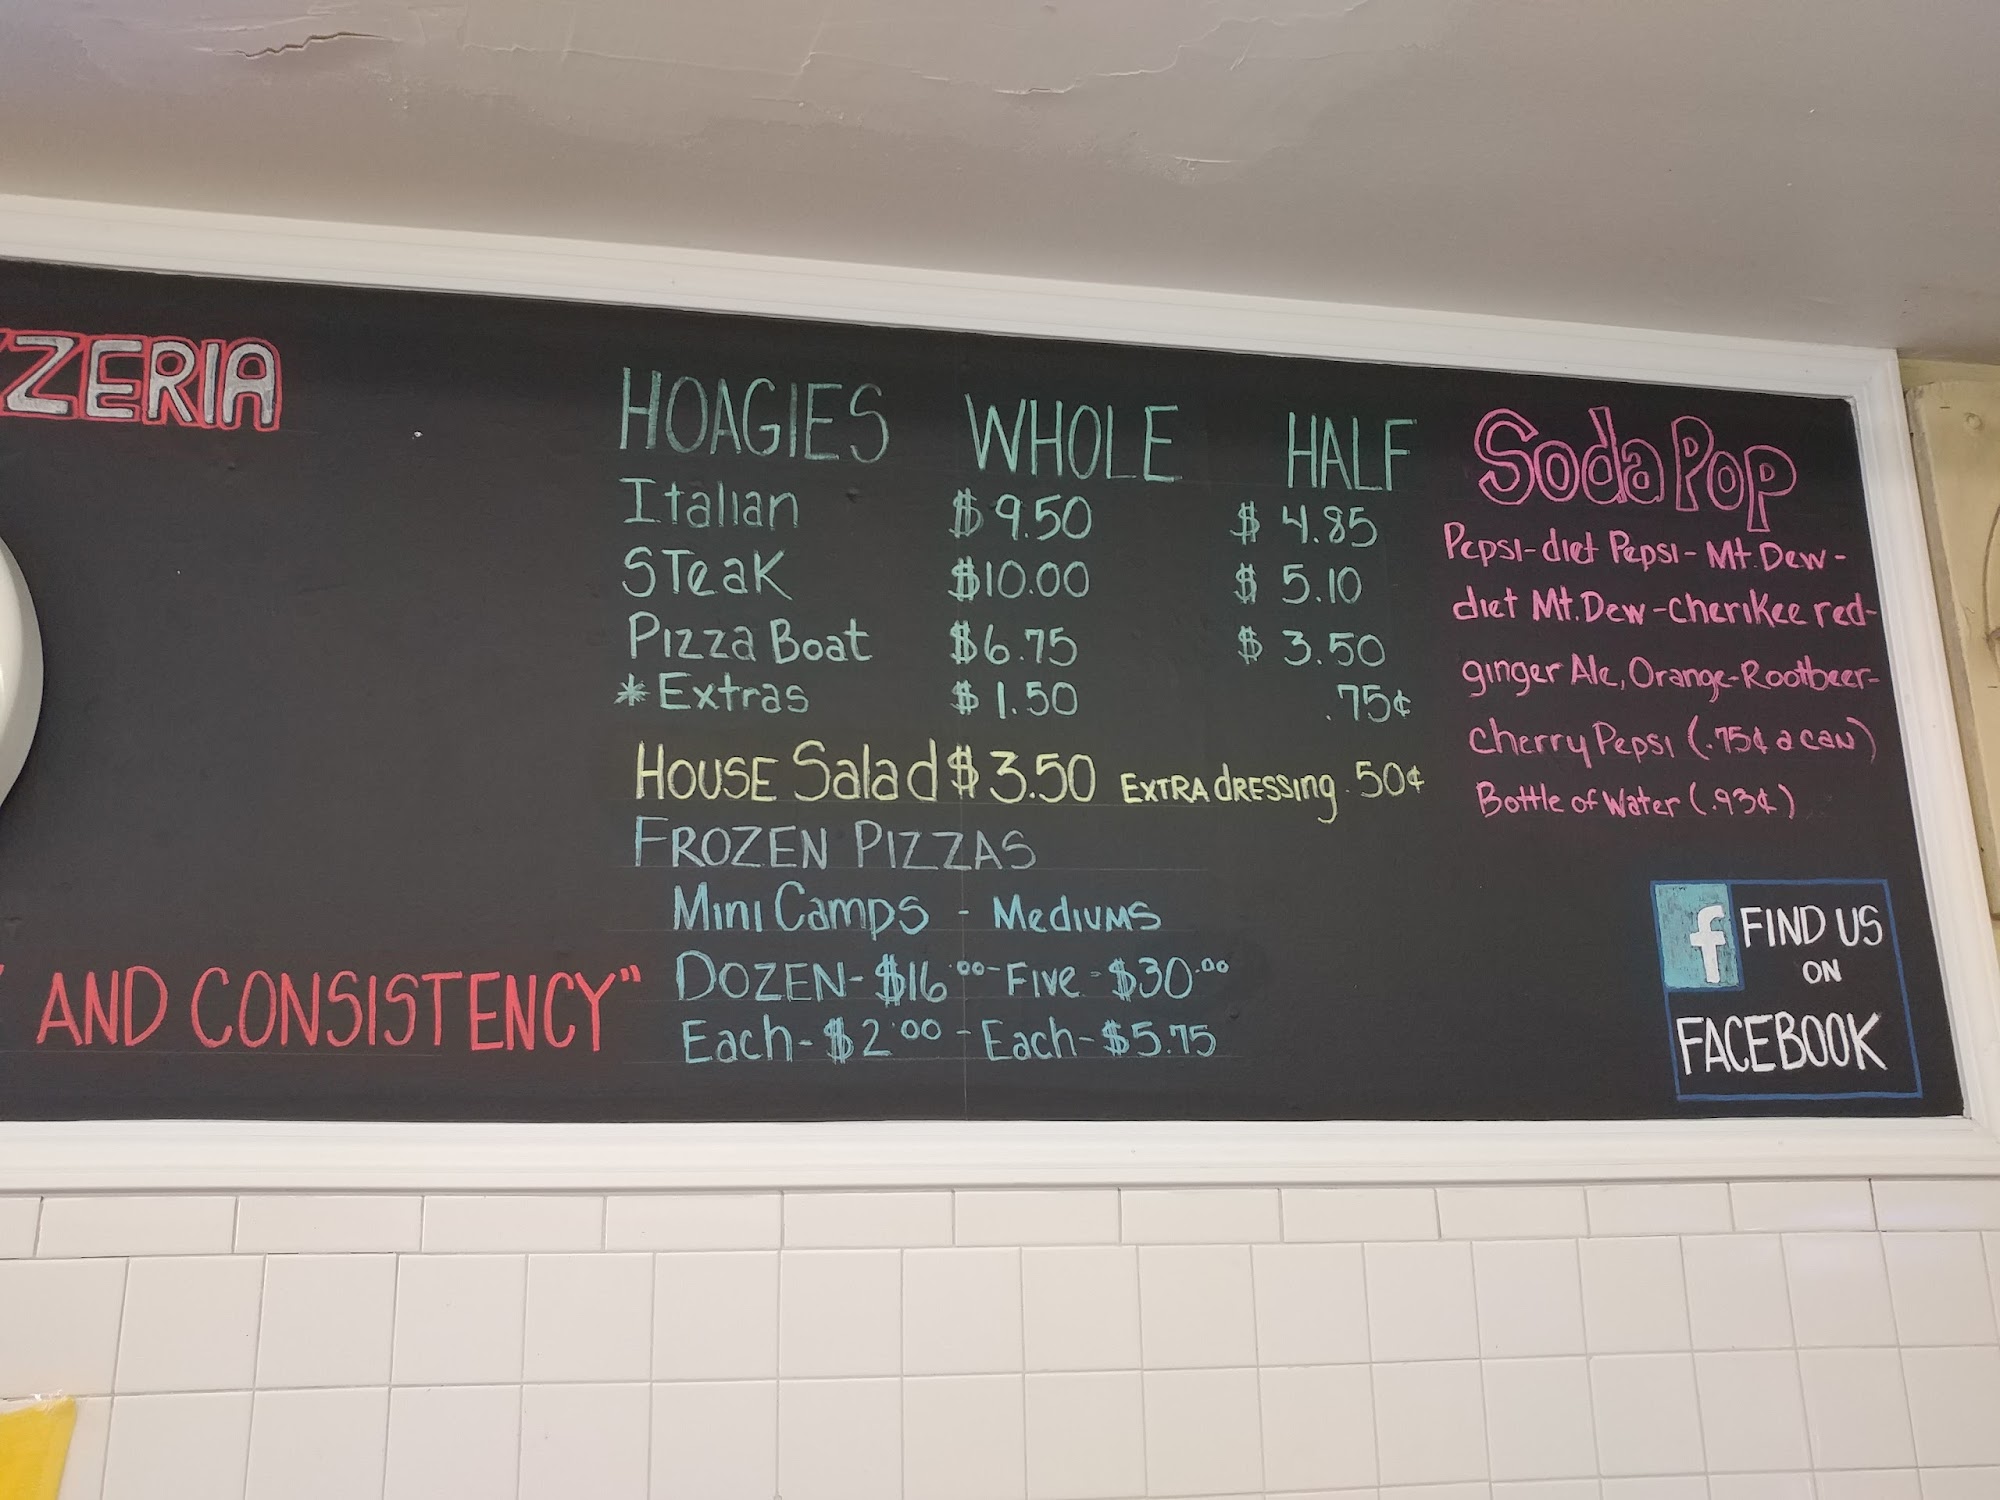 ZZERIA
HOAGIES WHOLE HALF
Italian $9.50 $4.85
STeaK $10.00 $5.10
Pizza Boat $6.75 $3.50
*Extras $1.50 .75¢
HOUSE Salad $3.50 EXTRA dRESSing .50¢
FROZEN PIZZAS
Mini Camps - Mediums
DOZEN- $16.00 - Five - $30.00
Each- $2.00 - Each- $5.75
AND CONSISTENCY"
Soda Pop
Pepsi-diet Pepsi- Mt.Dew-
diet Mt.Dew-cheriKee red-
ginger Ale, Orange-Rootbeer-
cherry Pepsi (.75¢ a can)
Bottle of Water (.93¢)
f FIND US
ON
FACEBOOK